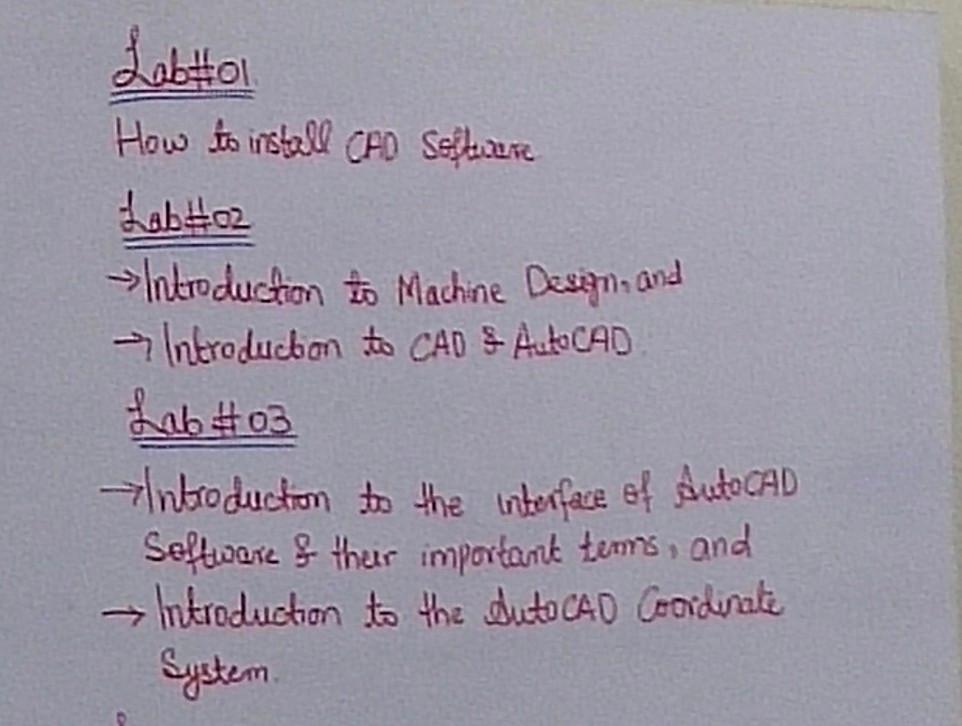 Lab#01
How to install CAD Software
Lab#02
→Introduction to Machine Design, and
→Introduction to CAD & AutoCAD.
Lab #03
→Introduction to the interface of AutoCAD
Software & their important terms, and
→ Introduction to the AutoCAD Coordinate
System.